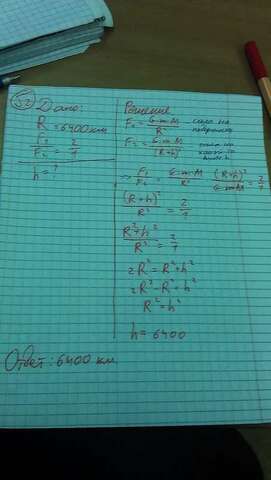 52 Дано:
R = 6400 км
F₁/F₂ = 2/1
h = ?
Решение
F₁ = G·m·M/R² – сила на поверхности
F₂ = G·m·M/(R+h)²
⇒ F₁/F₂ = G·m·M/R² · (R+h)²/G·m·M = 2/1
(R+h)²/R² = 2/1
R²+h²/R² = 2/1
2R² = R²+h²
2R²-R² = h²
R² = h²
h = 6400
Ответ: 6400 км.